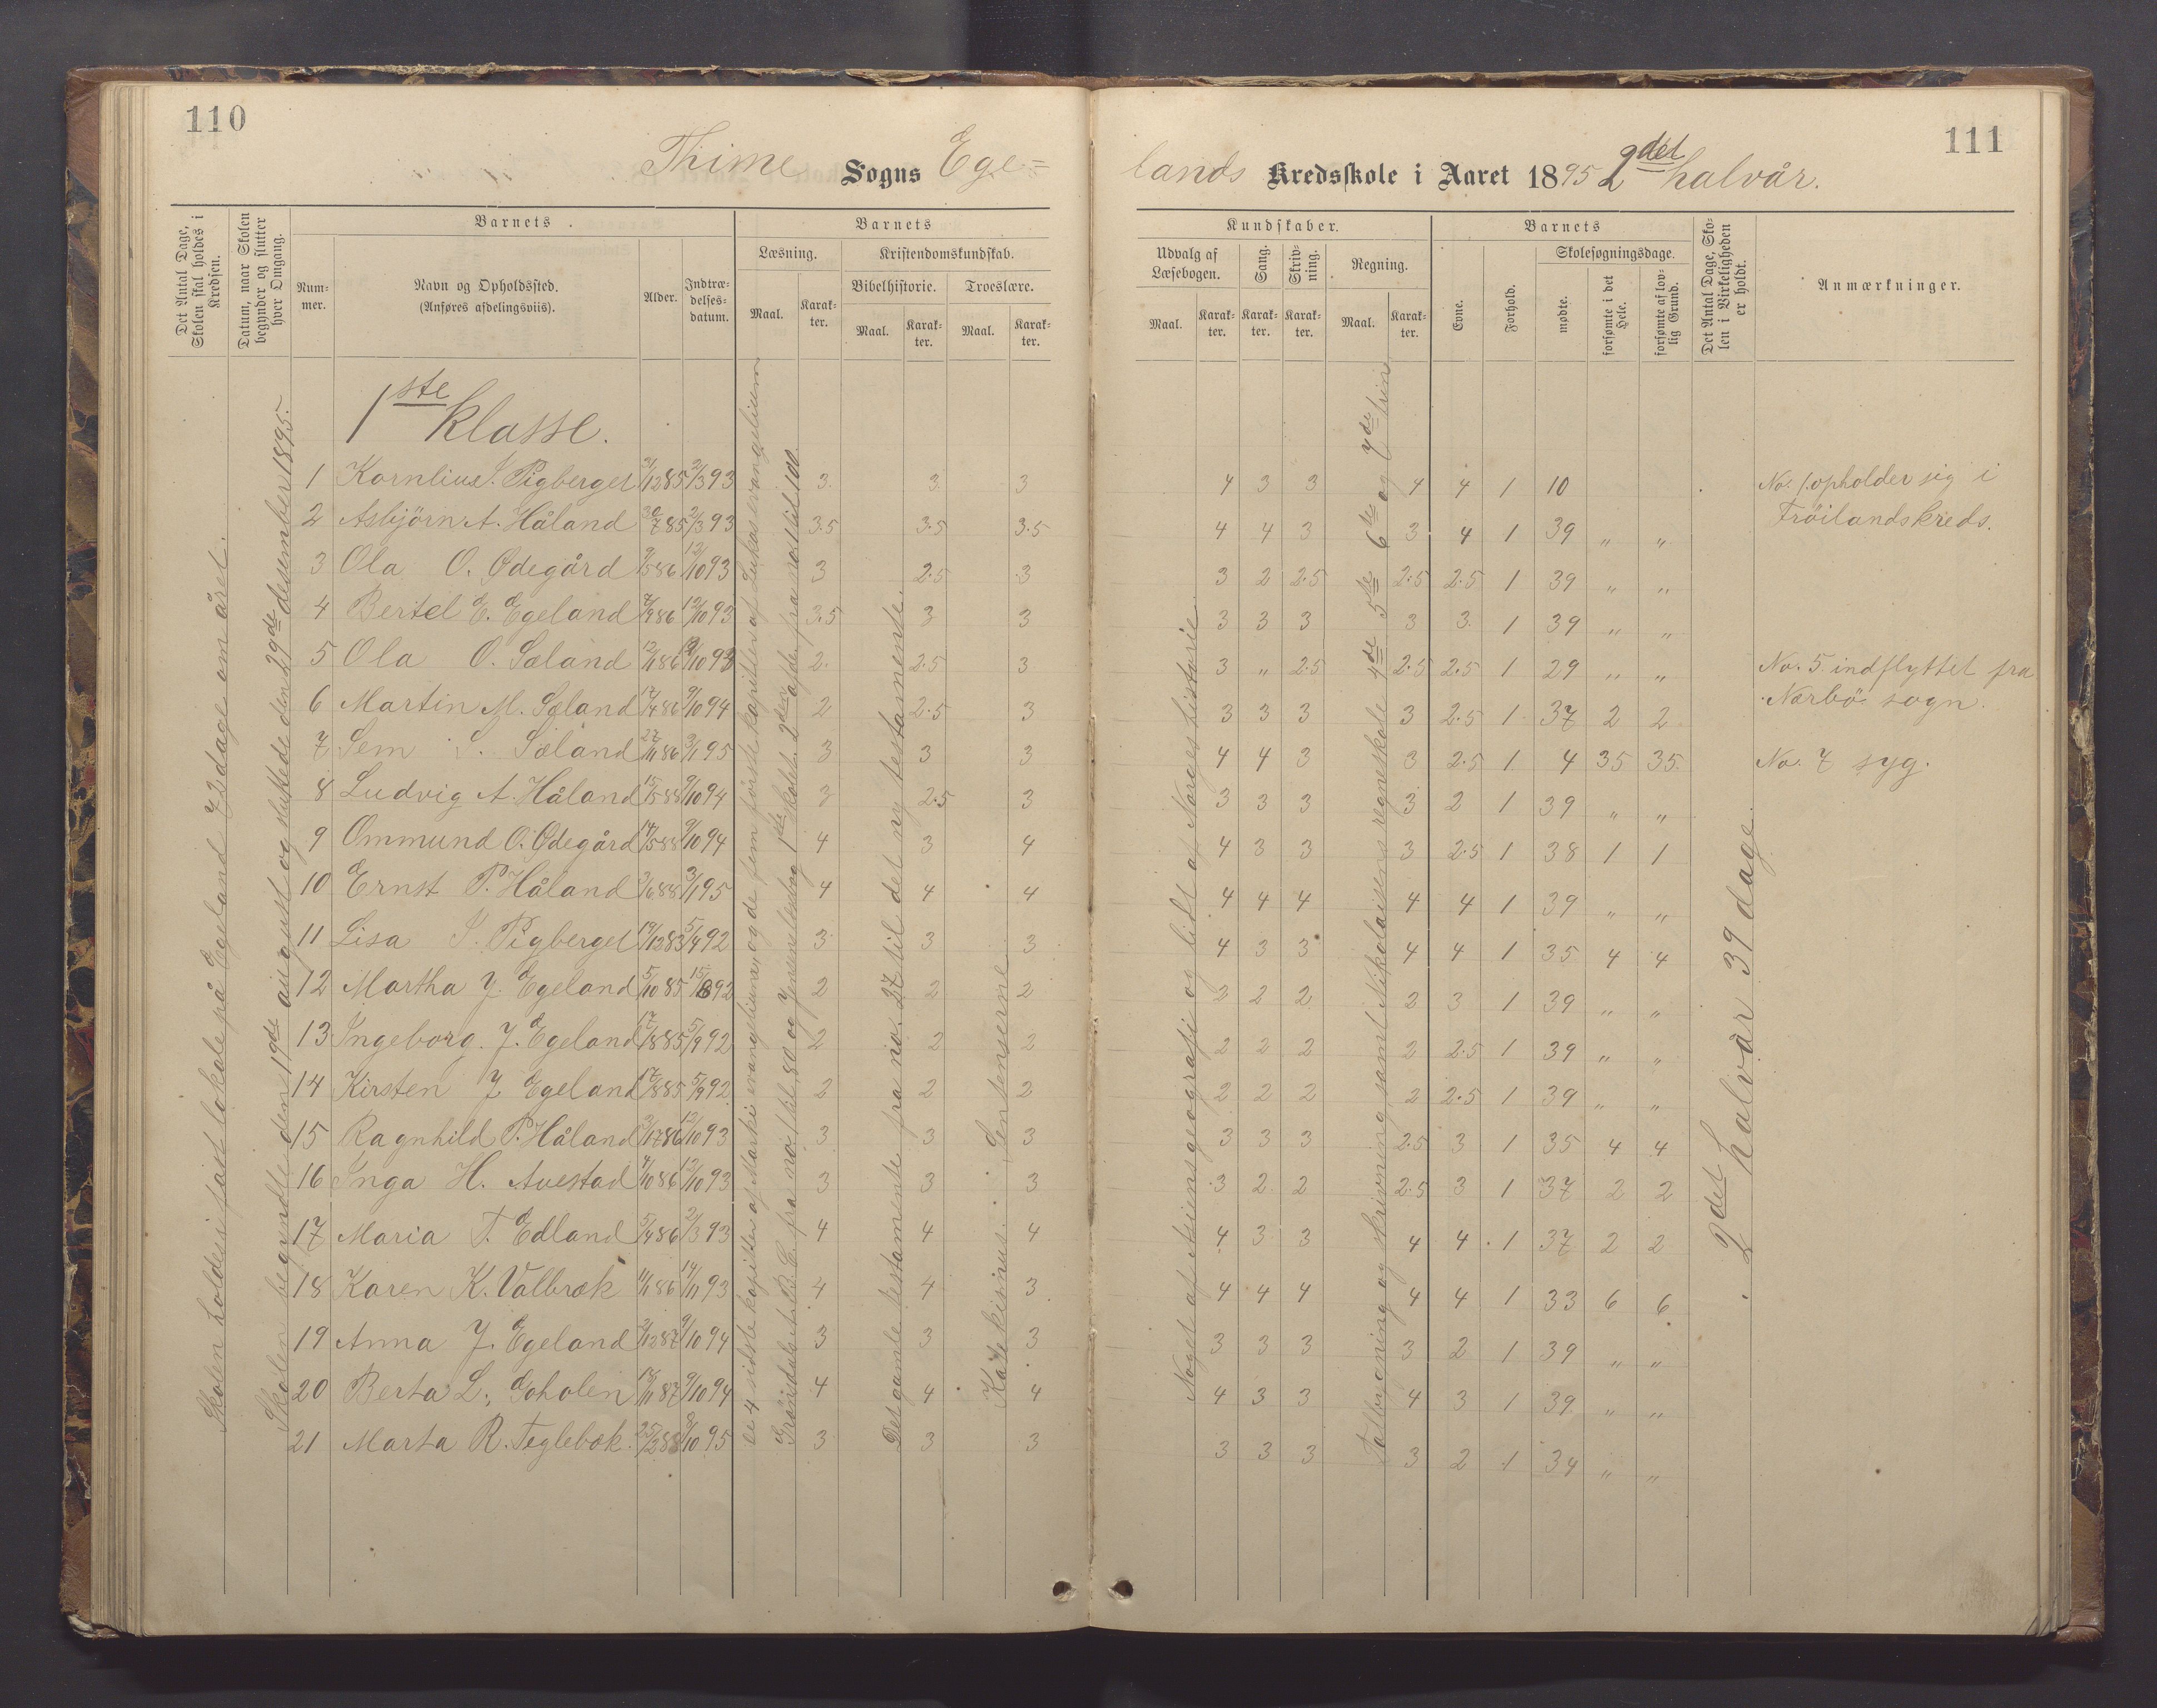 110
111
Thime Sogns Ege=
lands Kredsskole i Aaret 1895 2det halvår.
Det Antal Dage, Skolen skal holdes i Kredsen.
Datum, naar Skolen begynder og slutter hver Omgang.
Barnets
Num-mer.
Navn og Opholdssted.
(Anføres afdelingsviis).
Alder.
Indtræ-delses-datum.
Barnets
Læsning.
Maal.
Karak-ter.
Kristendomskundskab.
Bibelhistorie.
Troeslære.
Maal.
Karak-ter.
Maal.
Karak-ter.
Kundskaber.
Udvalg af Læsebogen.
Sang.
Skriv-ning.
Regning.
Maal.
Karak-ter.
Karak-ter.
Karak-ter.
Maal.
Karak-ter.
Barnets
Evne.
Forhold.
Skolesøgningsdage.
mødte.
forsømte i det Hele.
forsømte af lov-lig Grund.
Det Antal Dage, Sko-len i Virkeligheden er holdt.
Anmærkninger.
Skolen holdes i fast lokale på Egeland 72 dage om året.
Skolen begyndte den 19de august og sluttede den 29de desember 1895.
de 4 sidste kapitler af Marki evangelium, og de fem første kapitler af Lukas evangelium
Det gamle testamente fra no. 27 til det ny testamente.
Katekismus. Sentenserne
Noget af Asiens geografi og lidt af Norges historie.
Talbygning og skrivning samt Nikolaisens regneskole 4de 5te 6te og 7de trin
2det halvår 39 dage.
1ste klasse.
1 Kornlius S. Pigberget 31/12 85 2/3 93 3 3 3 4 3 3 4 4 1 10 No. 1. opholder sig i
Frøilands kreds.
2 Asbjörn A. Håland 30/7 85 2/3 93 3.5 3.5 3.5 4 4 3 3 4 1 39 " "
3 Ola O. Ødegård 9/5 86 12/10 93 3 2.5 3 3 2 2.5 2.5 2.5 1 39 " "
4 Bertel E. Egeland 4/9 86 12/10 93 3.5 3 3 3 3 3 3 3 1 39 " "
5 Ola O. Sæland 12/11 86 12/10 93 2. 2.5 3 3 " 2.5 2.5 2.5 1 29 " " No. 5 indflyttet fra
Nærbö sogn.
6 Martin M. Sæland 17/4 86 9/10 94 2 2.5 3 3 3 3 3 2.5 1 37 2 2
7 Sem S. Sæland 27/11 86 3/1 95 3 3 3 4 4 3 3 2.5 1 4 35 35 No. 7 syg.
8 Ludvig A. Håland 15/5 88 9/10 94 3 2.5 3 3 3 3 3 2 1 39 " "
9 Ommund O. Ødegård 14/5 88 9/10 94 4 3 4 4 3 3 3 2.5 1 38 1 1
10 Ernst P. Håland 3/6 88 3/1 95 4 4 4 4 4 4 4 4 1 39 " "
11 Lisa S. Pigberget 19/12 83 5/4 92 3 3 3 4 3 3 4 4 1 35 4 4
12 Martha J. Egeland 5/10 85 15/6 92 2 2 2 2 2 2 2 3 1 39 " "
13 Ingeborg. J. Egeland 17/8 85 5/9 92 2 2 2 2 2 2 2 2.5 1 39 " "
14 Kirsten J Egeland 17/8 85 5/9 92 2 2 2 2 2 2 2 2.5 1 39 " "
15 Ragnhild P. Håland 3/7 86 12/10 93 3 3 3 3 3 3 2.5 3 1 35 4 4
16 Inga H. Auestad 4/10 86 12/10 93 3 3 3 3 2 2 2.5 3 1 37 2 2
17 Maria T. Edland 5/4 86 2/3 93 4 4 4 4 3 3 4 4 1 37 2 2
18 Karen K. Valbræk 1/1 86 14/11 93 4 4 3 4 4 4 4 4 1 33 6 6
19 Anna J. Egeland 3/12 87 9/10 94 3 3 3 3 3 3 3 2 1 39 " "
20 Berta L. Goholen 9/10 94 4 4 4 4 3 3 4 3 1 39 " "
21 Marta R. Teglebæk. 25/2 88 8/10 95 3 3 3 3 3 3 3 2 1 34 " "